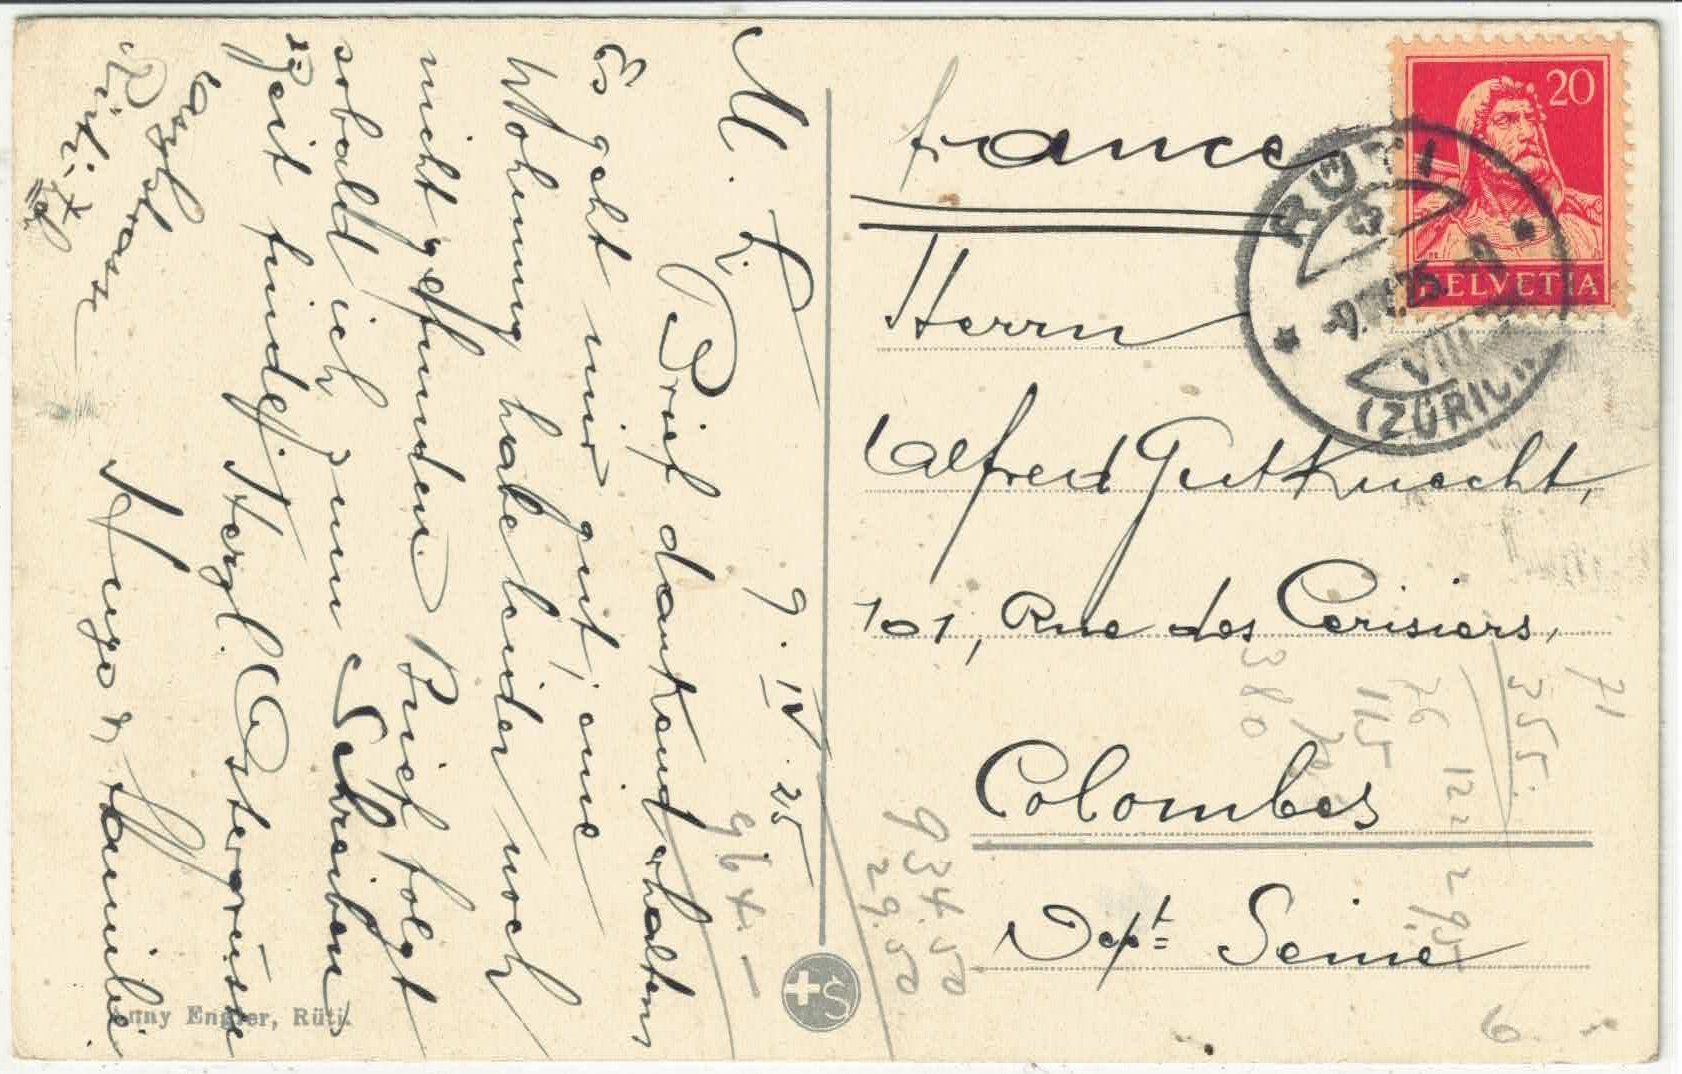 9. IV. 25
M. L.
Brief dankend erhalten,
Es geht mir gut, eine
Wohnung habe leider noch
nicht gefunden Brief folgt
sobald ich zum Schreiben
Zeit finde. Herzl. Ostergrüsse
Hugo & Familie
Rüti Zch
Anny Engler, Rüti.
S
France
Herrn
Alfred Gutknecht,
101, Rue des Cerisiers,
Colombes
Dept Seine
20
HELVETIA
RÜTI
VIII
(ZÜRICH)
964.-
934.50
29.50
380
115
76
122
295
355.
71
6